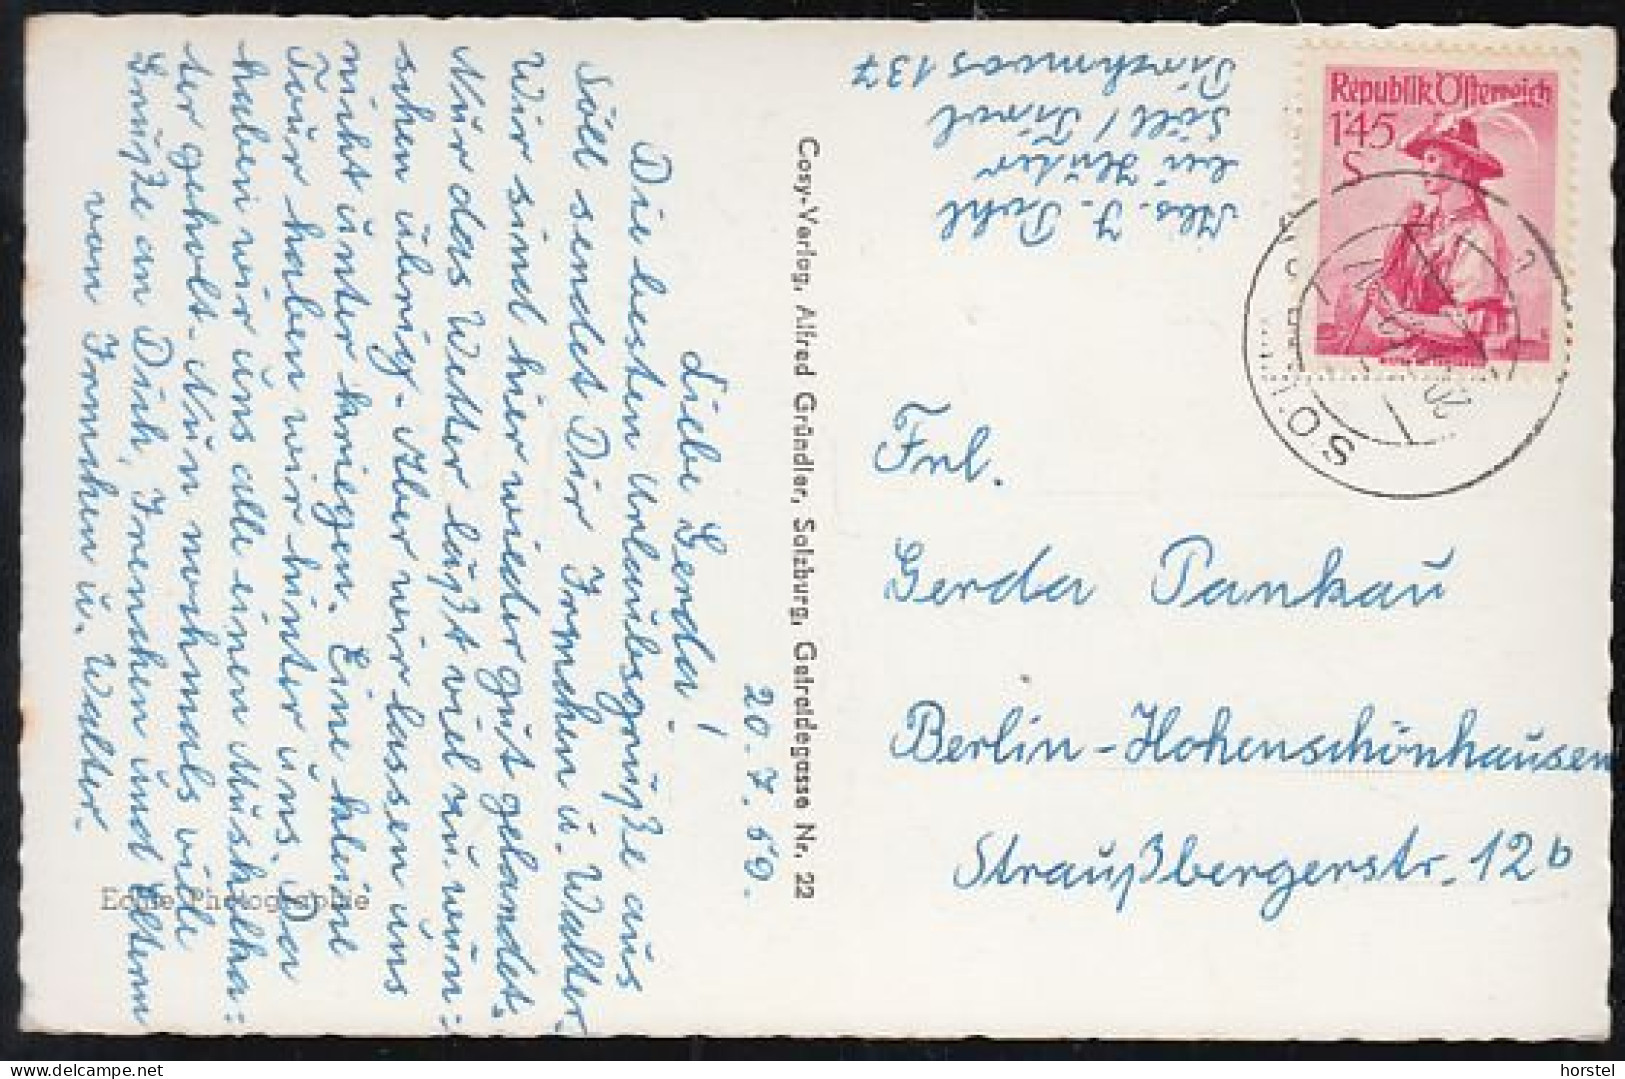 20.7.60.
Liebe Gerda!
Die besten Urlaubsgrüße aus
Söll sendet Dir Irmchen u. Walter.
Wir sind hier wieder gut gelandet.
Nur das Wetter läßt viel zu wün=
schen übrig. Aber wir lassen uns
nicht unter kriegen. Eine kleine
Tour haben wir hinter uns. Da
haben wir uns alle einen Muskelka=
ter geholt. Nun nochmals viele
Grüße an Dich, Irenchen und Eltern
von Irmchen u. Walter.
Echte Photographie
Cosy-Verlag, Alfred Gründler, Salzburg, Getreidegasse Nr. 22
Abs. J. Pohl
bei
Söll / Tirol
Pirchmoos 137
Republik Österreich
1'45
S
SÖLL
20
Frl.
Gerda Pankau
Berlin-Hohenschönhausen
Straußbergerstr. 12b
horstel
delcampe.net